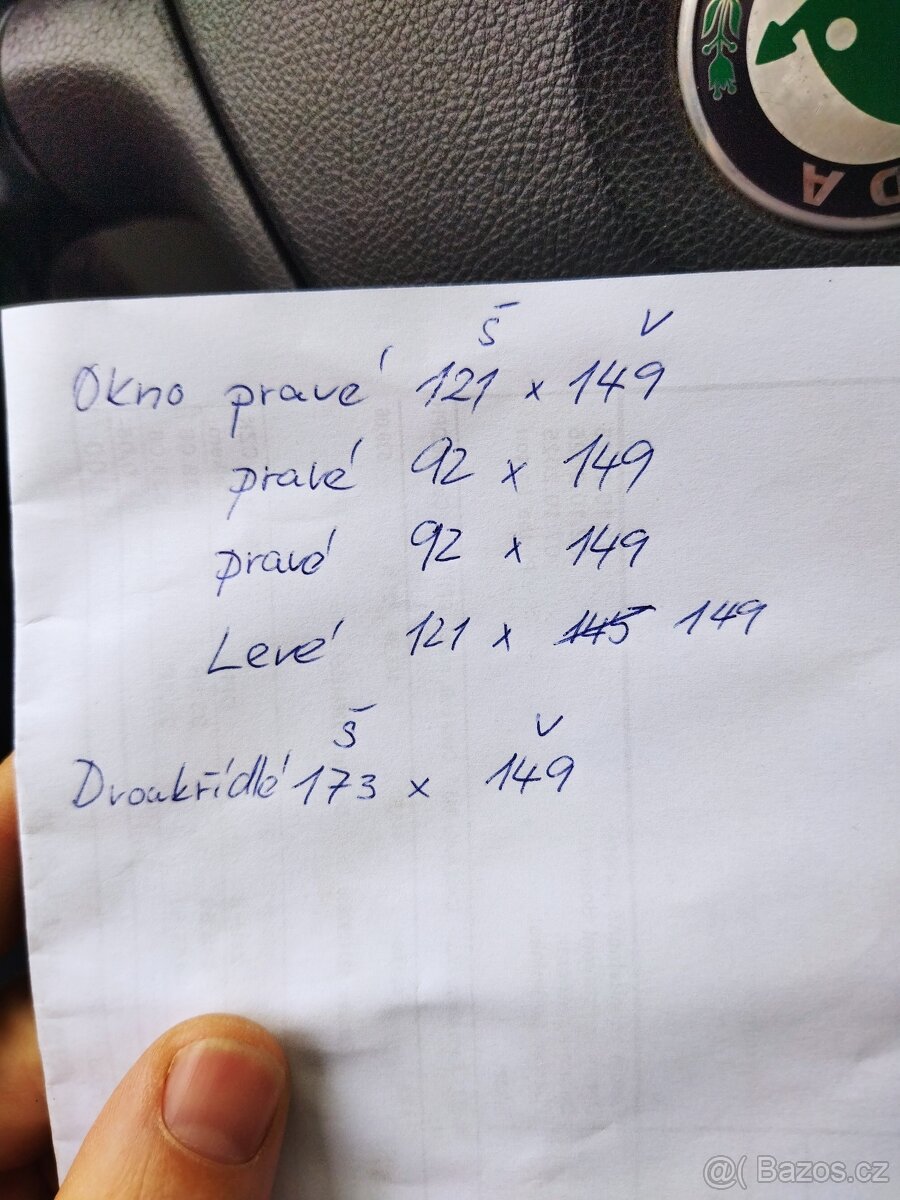 DA
Š V
Okno pravé 121 x 149
pravé 92 x 149
pravé 92 x 149
Levé 121 x 145 149
Š V
Dvoukřídlé 173 x 149
@( Bazos.cz